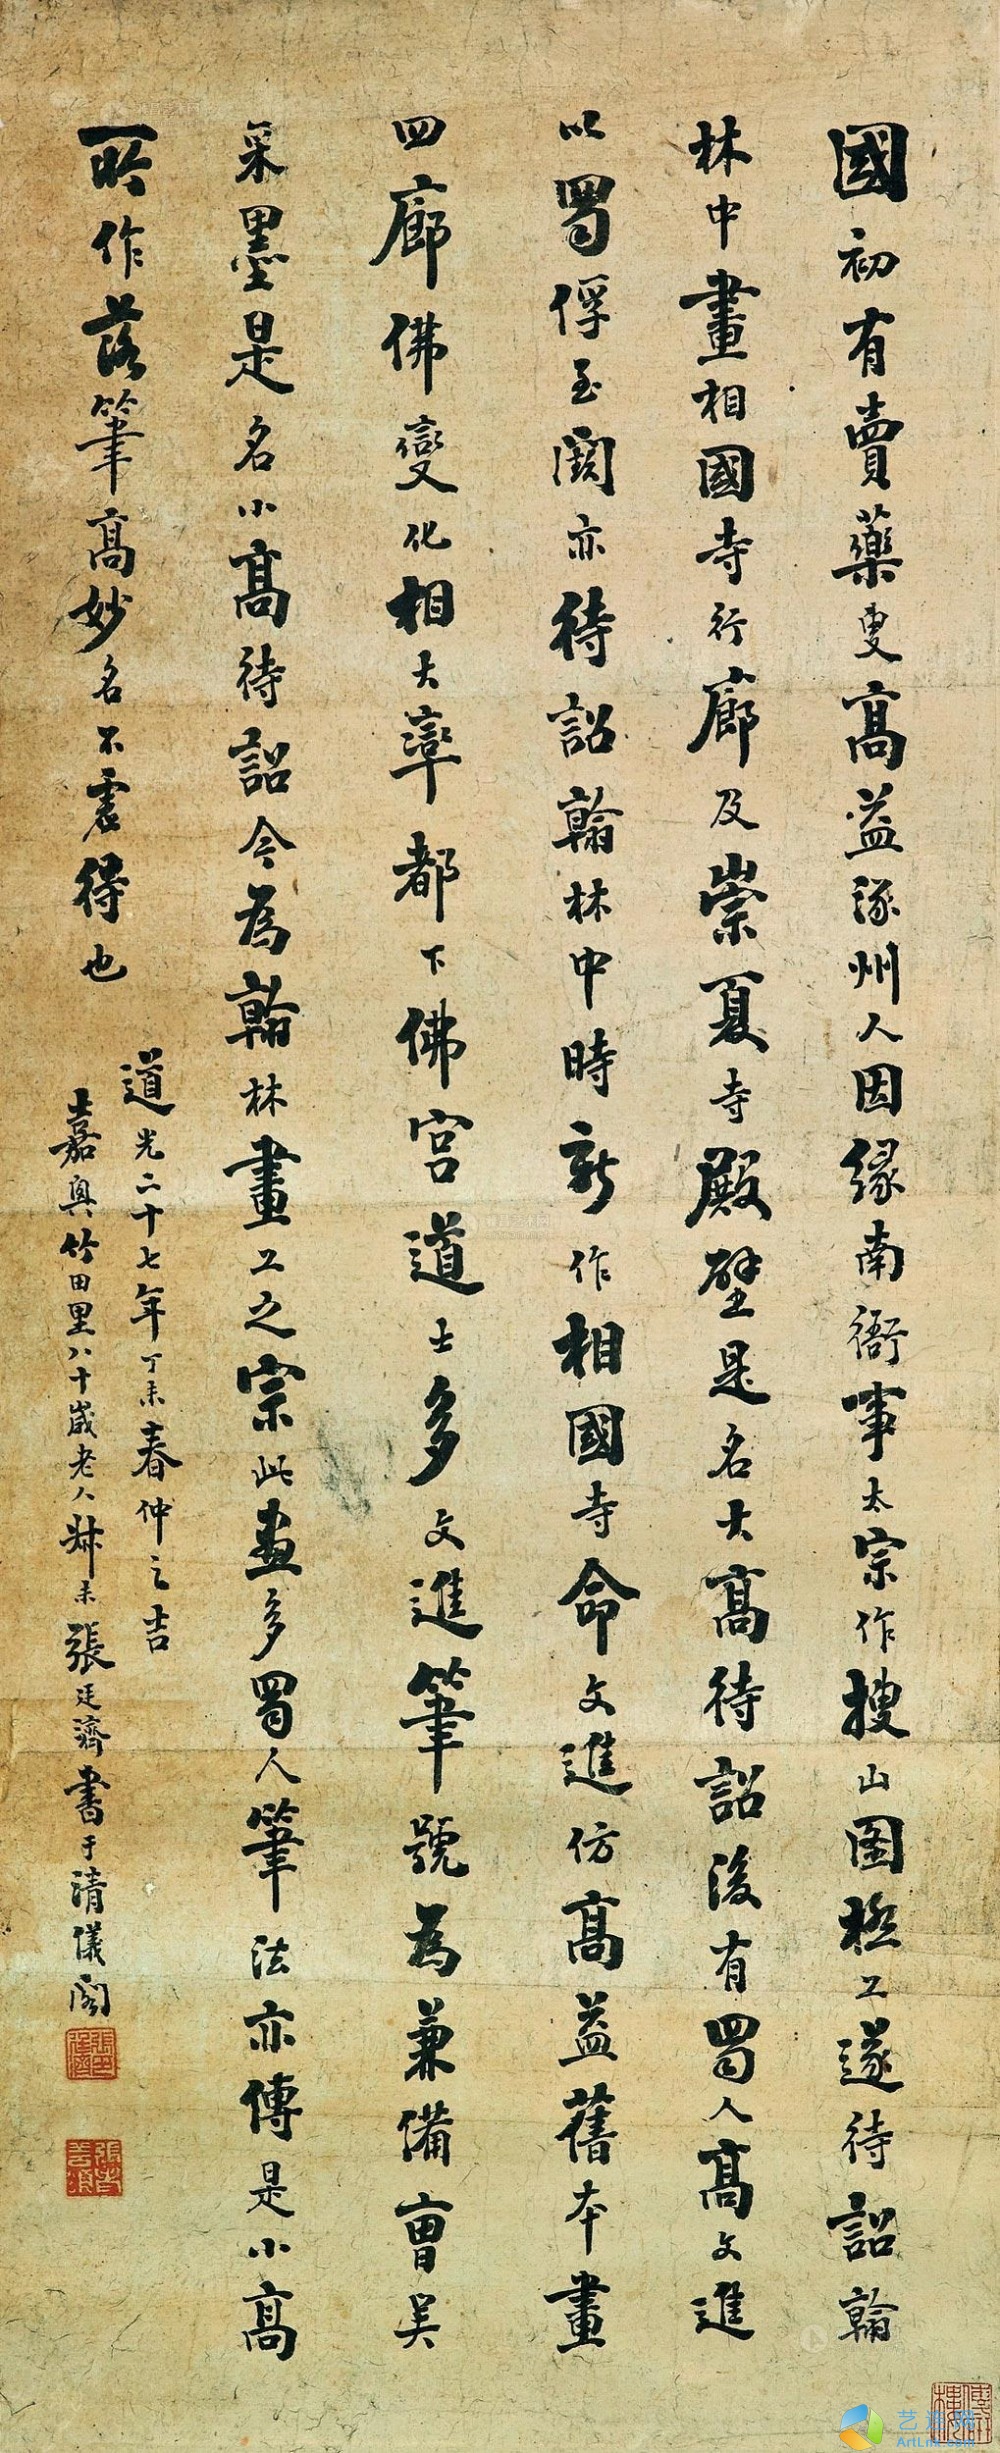 國初有賣藥叟高益涿州人因緣南衙事太宗作搜山圖極工遂待詔翰
林中畫相國寺行廊及崇夏寺殿壁是名大高待詔後有蜀人高文進
以蜀俘至闕亦待詔翰林中時新作相國寺命文進仿高益舊本畫
四廊佛變化相大率都下佛宮道士多文進筆號為兼備曹吳
采墨是名小高待詔今為翰林畫工之宗此畫多蜀人筆法亦傳是小高
所作落筆高妙名不虛得也
道光二十七年丁未春仲之吉
嘉興竹田里八十歲老人叔未張廷濟書于清儀閣
張廷濟
ArtLnk.com